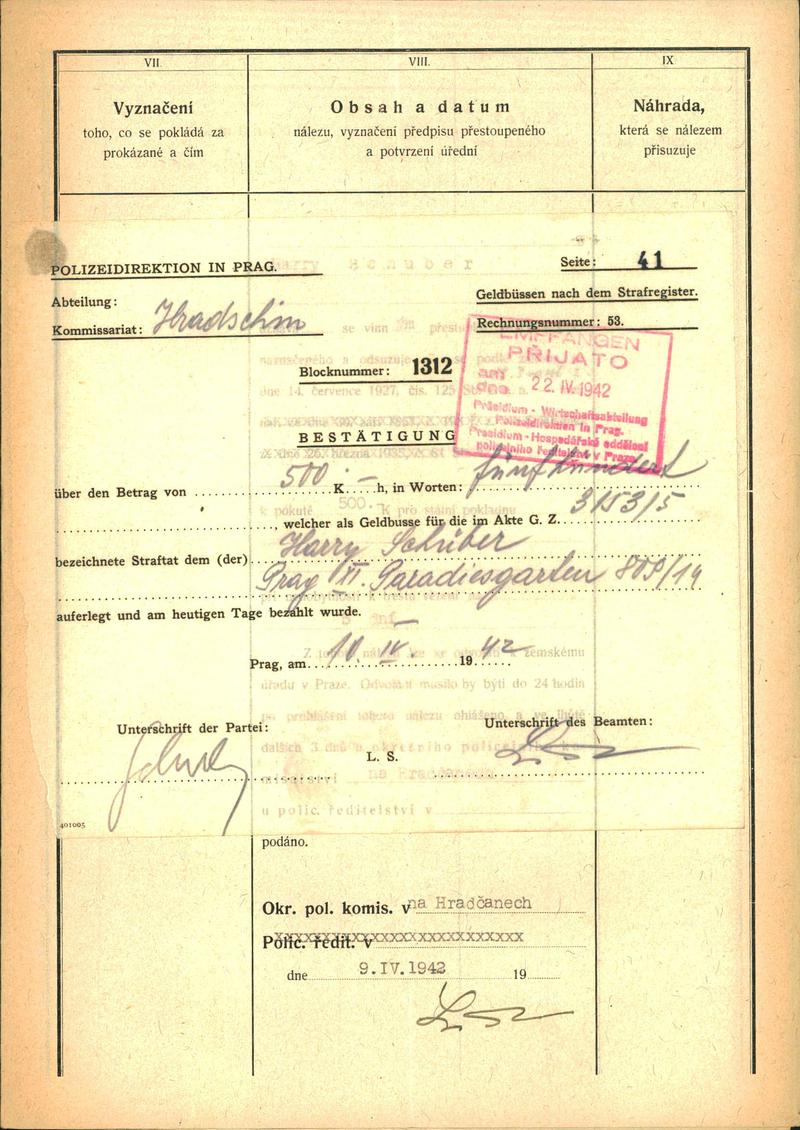 VII.
Vyznačení
toho, co se pokládá za
prokázané a čím
VIII.
Obsah a datum
nálezu, vyznačení předpisu přestoupeného
a potvrzení úřední
IX
Náhrada,
která se nálezem
přisuzuje
POLIZEIDIREKTION IN PRAG.
Harry Schuber
Seite: 41
Abteilung:
Kommissariat: Hradschin
Geldbüssen nach dem Strafregister.
Rechnungsnummer: 53.
Blocknummer: 1312
EMPFANGEN
PŘIJATO
am
dne 22. IV. 1942
Präsidium - Wirtschaftsabteilung
Polizeidirektion in Prag.
Praesidium - Hospodářské oddělení
policejního ředitelství v Praze
se vinn
dne 14. července 1927, čís. 125
BESTÄTIGUNG
über den Betrag von 500.- K h, in Worten: fünfhundert
k pokutě 500.- K pro státní pokladnu
, welcher als Geldbusse für die im Akte G. Z. 3153/5
bezeichnete Straftat dem (der) Harry Schüber
Prag VI. Paradiesgarten 809/19
auferlegt und am heutigen Tage bezahlt wurde.
Prag, am 10. IV. 1942
zemskému
úřadu v Praze. Odvolání musilo by býti do 24 hodin
po prohlášení tohoto nálezu ohlášeno a ve lhůtě
dalších 3 dnů u okresního policejního ko-
misařství na Hradčanech
u polic. ředitelství v
Unterschrift der Partei:
Unterschrift des Beamten:
L. S.
401005
podáno.
Okr. pol. komis. v na Hradčanech
Polic. ředit. v
dne 9.IV.1942 19